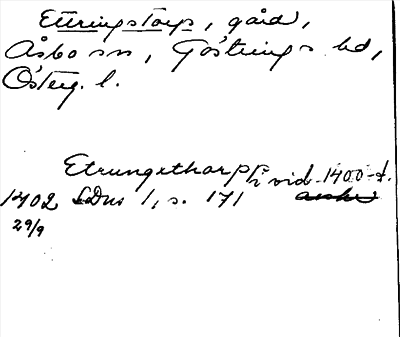 Ettringstorp, gård,
Åsbo sn, Göstrings hd,
Österg. l.
Etrungxtharpp i vid 1400-t.
1402 SDns 1, s. 171
29/9